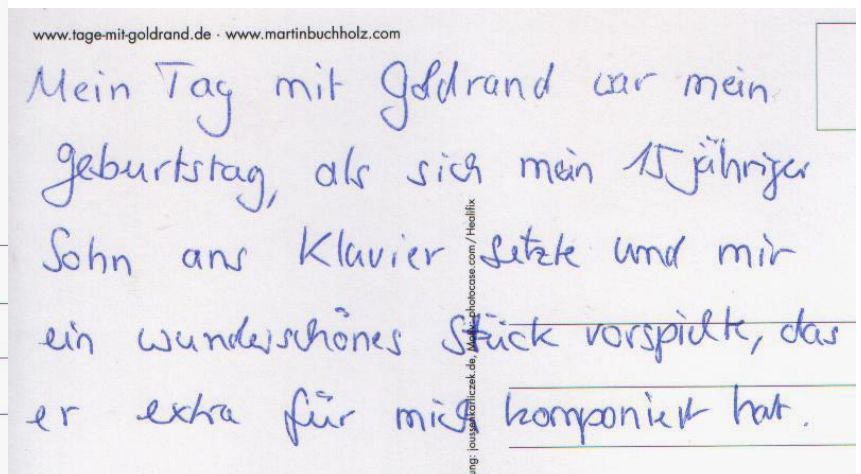 www.tage-mit-goldrand.de · www.martinbuchholz.com
Mein Tag mit Goldrand war mein
Geburtstag, als sich mein 15jähriger
Sohn ans Klavier setzte und mir
ein wunderschönes Stück vorspielte, das
er extra für mich komponiert hat.
ung: joussenkarliczek.de, Motiv: photocase.com / Healifix